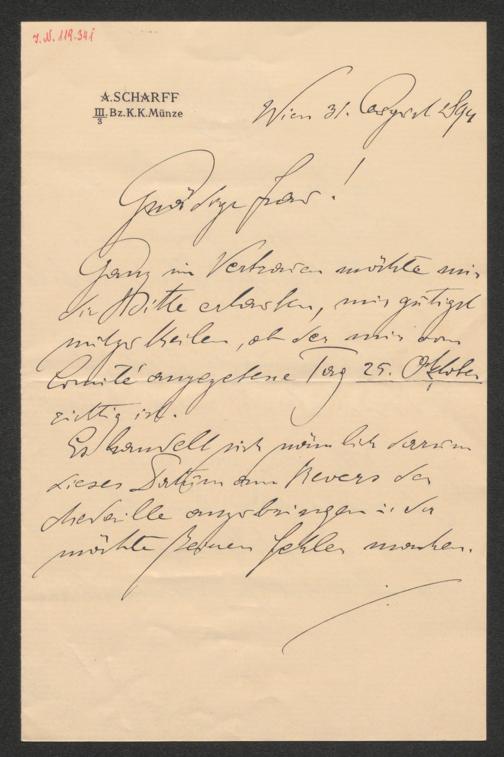 J.N. 119.341
A. SCHARFF
III/3 Bz. K. K. Münze
Wien 31. August 1894
Gnädige Frau!
Ganz im Vertrauen möchte mir
die Bitte erlauben, mir gütigst
mitzutheilen, ob der mir vom
Comité angegebene Tag 25. Oktober
richtig ist.
Es handelt sich nämlich darum
dieses Datum am Revers der
Medaille anzubringen u. da
möchte keinen Fehler machen.